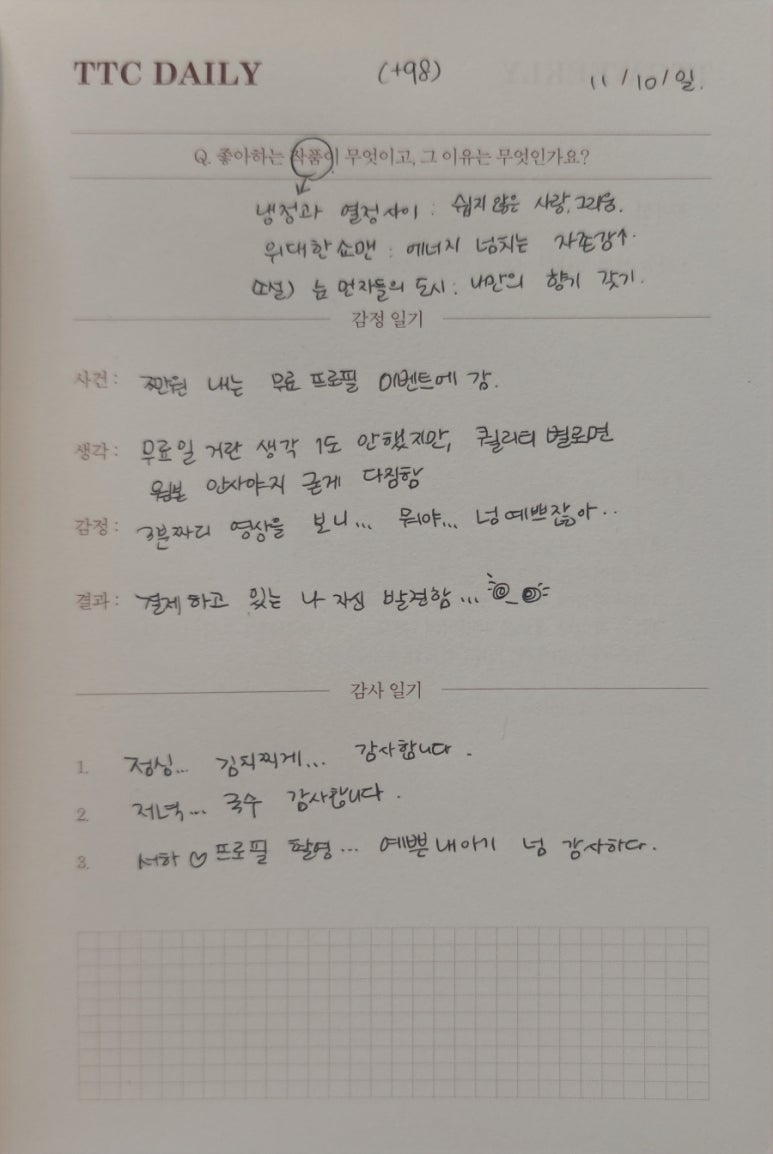 TTC DAILY (+98) 11/10/일.
Q. 좋아하는 작품이 무엇이고, 그 이유는 무엇인가요?
냉정과 열정사이 : 쉽지 않은 사랑, 그리움.
위대한 쇼맨 : 에너지 넘치는 자존감↑.
(소설) 눈 먼자들의 도시 : 나만의 향기 갖기.
감정 일기
사건 : 만원 내는 무료 프로필 이벤트에 감.
생각 : 무료일 거란 생각 1도 안했지만, 퀄리티 별로면
원본 안사야지 굳게 다짐함
감정 : 3분짜리 영상을 보니... 뭐야... 넘 예쁘잖아..
결과 : 결제하고 있는 나 자신 발견함...
감사 일기
1. 점심... 김치찌게... 감사합니다.
2. 저녁... 국수 감사합니다.
3. 서하 ♡ 프로필 촬영... 예쁜 내아기 넘 감사하다.